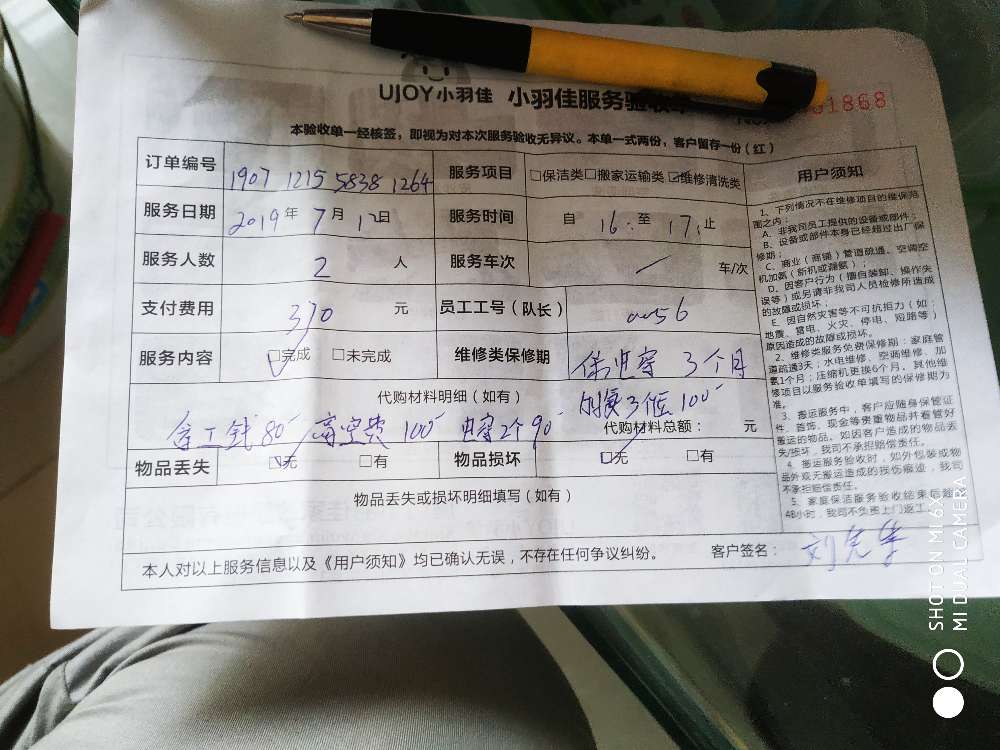 UJOY小羽佳 小羽佳服务验收
01868
本验收单一经核签，即视为对本次服务验收无异议。本单一式两份，客户留存一份（红）
订单编号 1907 1215 5838 1264 服务项目 □保洁类□搬家运输类☑维修清洗类
服务日期 2019年 7月 12日 服务时间 自 16: 至 17: 止
服务人数 2 人 服务车次 / 车/次
支付费用 370 元 员工工号（队长） 0056
服务内容 ☑完成 □未完成 维修类保修期 保电容 3个月
代购材料明细（如有）
拿工钱80 高空费 100 电容2个90 3位100
代购材料总额： 元
物品丢失 ☑无 □有 物品损坏 ☑无 □有
物品丢失或损坏明细填写（如有）
本人对以上服务信息以及《用户须知》均已确认无误，不存在任何争议纠纷。 客户签名：
用户须知
1、下列情况不在维修项目的维保范
围之内：
A、非我司员工提供的设备或部件；
B、设备或部件本身已经超过出厂保
修期；
C、商业（商铺）管道疏通、空调空
机加氨（新机或漏氨）；
D、因客户行为（擅自装卸、操作失
误等）或另请非我司人员检修所造成
的故障或损坏；
E、因自然灾害等不可抗拒力（如：
地震、雷电、火灾、停电、短路等）
原因造成的故障或损坏。
2、维修类服务免费保修期：家庭管
道疏通3天；水电维修、空调维修、加
氨1个月；压缩机更换6个月。其他维
修项目以服务验收单填写的保修期为
准。
3、搬运服务中，客户应随身保管证
件、首饰、现金等贵重物品并看管好
搬运的物品。如因客户造成的物品丢
失/损坏，我司不承担赔偿责任。
4、搬运服务验收时，如外包装或物
品外观无搬运造成的残伤痕迹，我司
不承担赔偿责任。
5、家庭保洁服务验收结束后超
48小时，我司不负责上门返工。
SHOT ON MI 6X
MI DUAL CAMERA